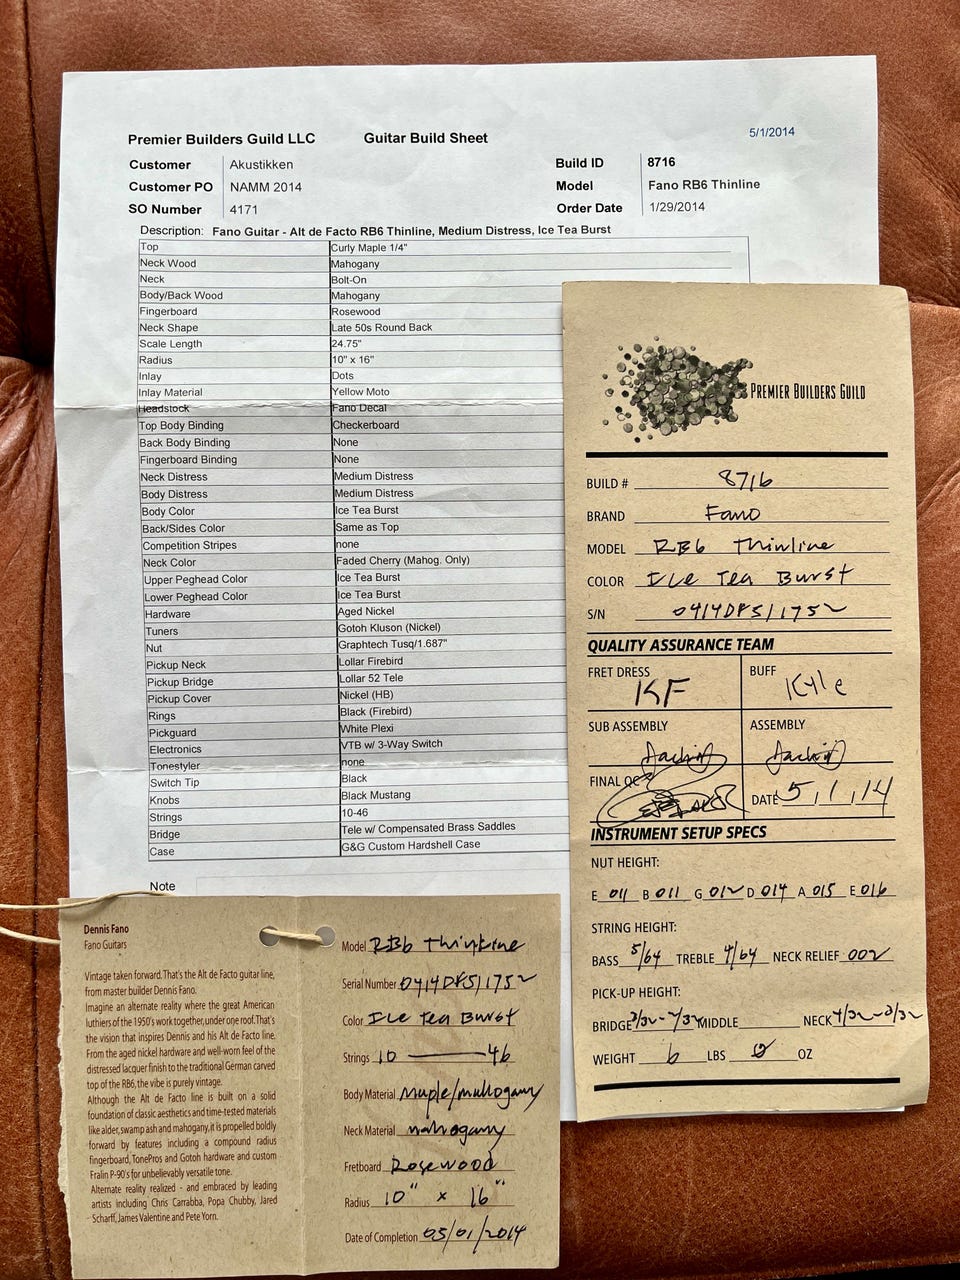 Premier Builders Guild LLC Guitar Build Sheet 5/1/2014
Customer Akustikken Build ID 8716
Customer PO NAMM 2014 Model Fano RB6 Thinline
SO Number 4171 Order Date 1/29/2014
Description: Fano Guitar - Alt de Facto RB6 Thinline, Medium Distress, Ice Tea Burst
Top Curly Maple 1/4"
Neck Wood Mahogany
Neck Bolt-On
Body/Back Wood Mahogany
Fingerboard Rosewood
Neck Shape Late 50s Round Back
Scale Length 24.75"
Radius 10" x 16"
Inlay Dots
Inlay Material Yellow Moto
Headstock Fano Decal
Top Body Binding Checkerboard
Back Body Binding None
Fingerboard Binding None
Neck Distress Medium Distress
Body Distress Medium Distress
Body Color Ice Tea Burst
Back/Sides Color Same as Top
Competition Stripes none
Neck Color Faded Cherry (Mahog. Only)
Upper Peghead Color Ice Tea Burst
Lower Peghead Color Ice Tea Burst
Hardware Aged Nickel
Tuners Gotoh Kluson (Nickel)
Nut Graphtech Tusq/1.687"
Pickup Neck Lollar Firebird
Pickup Bridge Lollar 52 Tele
Pickup Cover Nickel (HB)
Rings Black (Firebird)
Pickguard White Plexi
Electronics VTB w/ 3-Way Switch
Tonestyler none
Switch Tip Black
Knobs Black Mustang
Strings 10-46
Bridge Tele w/ Compensated Brass Saddles
Case G&G Custom Hardshell Case
Note
PREMIER BUILDERS GUILD
BUILD # 8716
BRAND Fano
MODEL RB6 Thinline
COLOR Ice Tea Burst
S/N 0414DFS11752
QUALITY ASSURANCE TEAM
FRET DRESS KF BUFF Kyle
SUB ASSEMBLY ASSEMBLY
FINAL QC DATE 5/1/14
INSTRUMENT SETUP SPECS
NUT HEIGHT:
E 011 B 011 G 012 D 014 A 015 E 016
STRING HEIGHT:
BASS 5/64 TREBLE 4/64 NECK RELIEF 002
PICK-UP HEIGHT:
BRIDGE 3/32-2/32 MIDDLE NECK 4/32-3/32
WEIGHT 6 LBS 0 OZ
Dennis Fano
Fano Guitars
Vintage taken forward. That's the Alt de Facto guitar line,
from master builder Dennis Fano.
Imagine an alternate reality where the great American
luthiers of the 1950's work together, under one roof. That's
the vision that inspires Dennis and his Alt de Facto line.
From the aged nickel hardware and well-worn feel of the
distressed lacquer finish to the traditional German carved
top of the RB6, the vibe is purely vintage.
Although the Alt de Facto line is built on a solid
foundation of classic aesthetics and time-tested materials
like alder, swamp ash and mahogany, it is propelled boldly
forward by features including a compound radius
fingerboard, TonePros and Gotoh hardware and custom
Fralin P-90's for unbelievably versatile tone.
Alternate reality realized - and embraced by leading
artists including Chris Carrabba, Popa Chubby, Jared
Scharff, James Valentine and Pete Yorn.
Model RB6 Thinline
Serial Number 0414DFS11752
Color Ice Tea Burst
Strings 10 — 46
Body Material Maple/mahogany
Neck Material mahogany
Fretboard Rosewood
Radius 10" x 16"
Date of Completion 05/01/2014